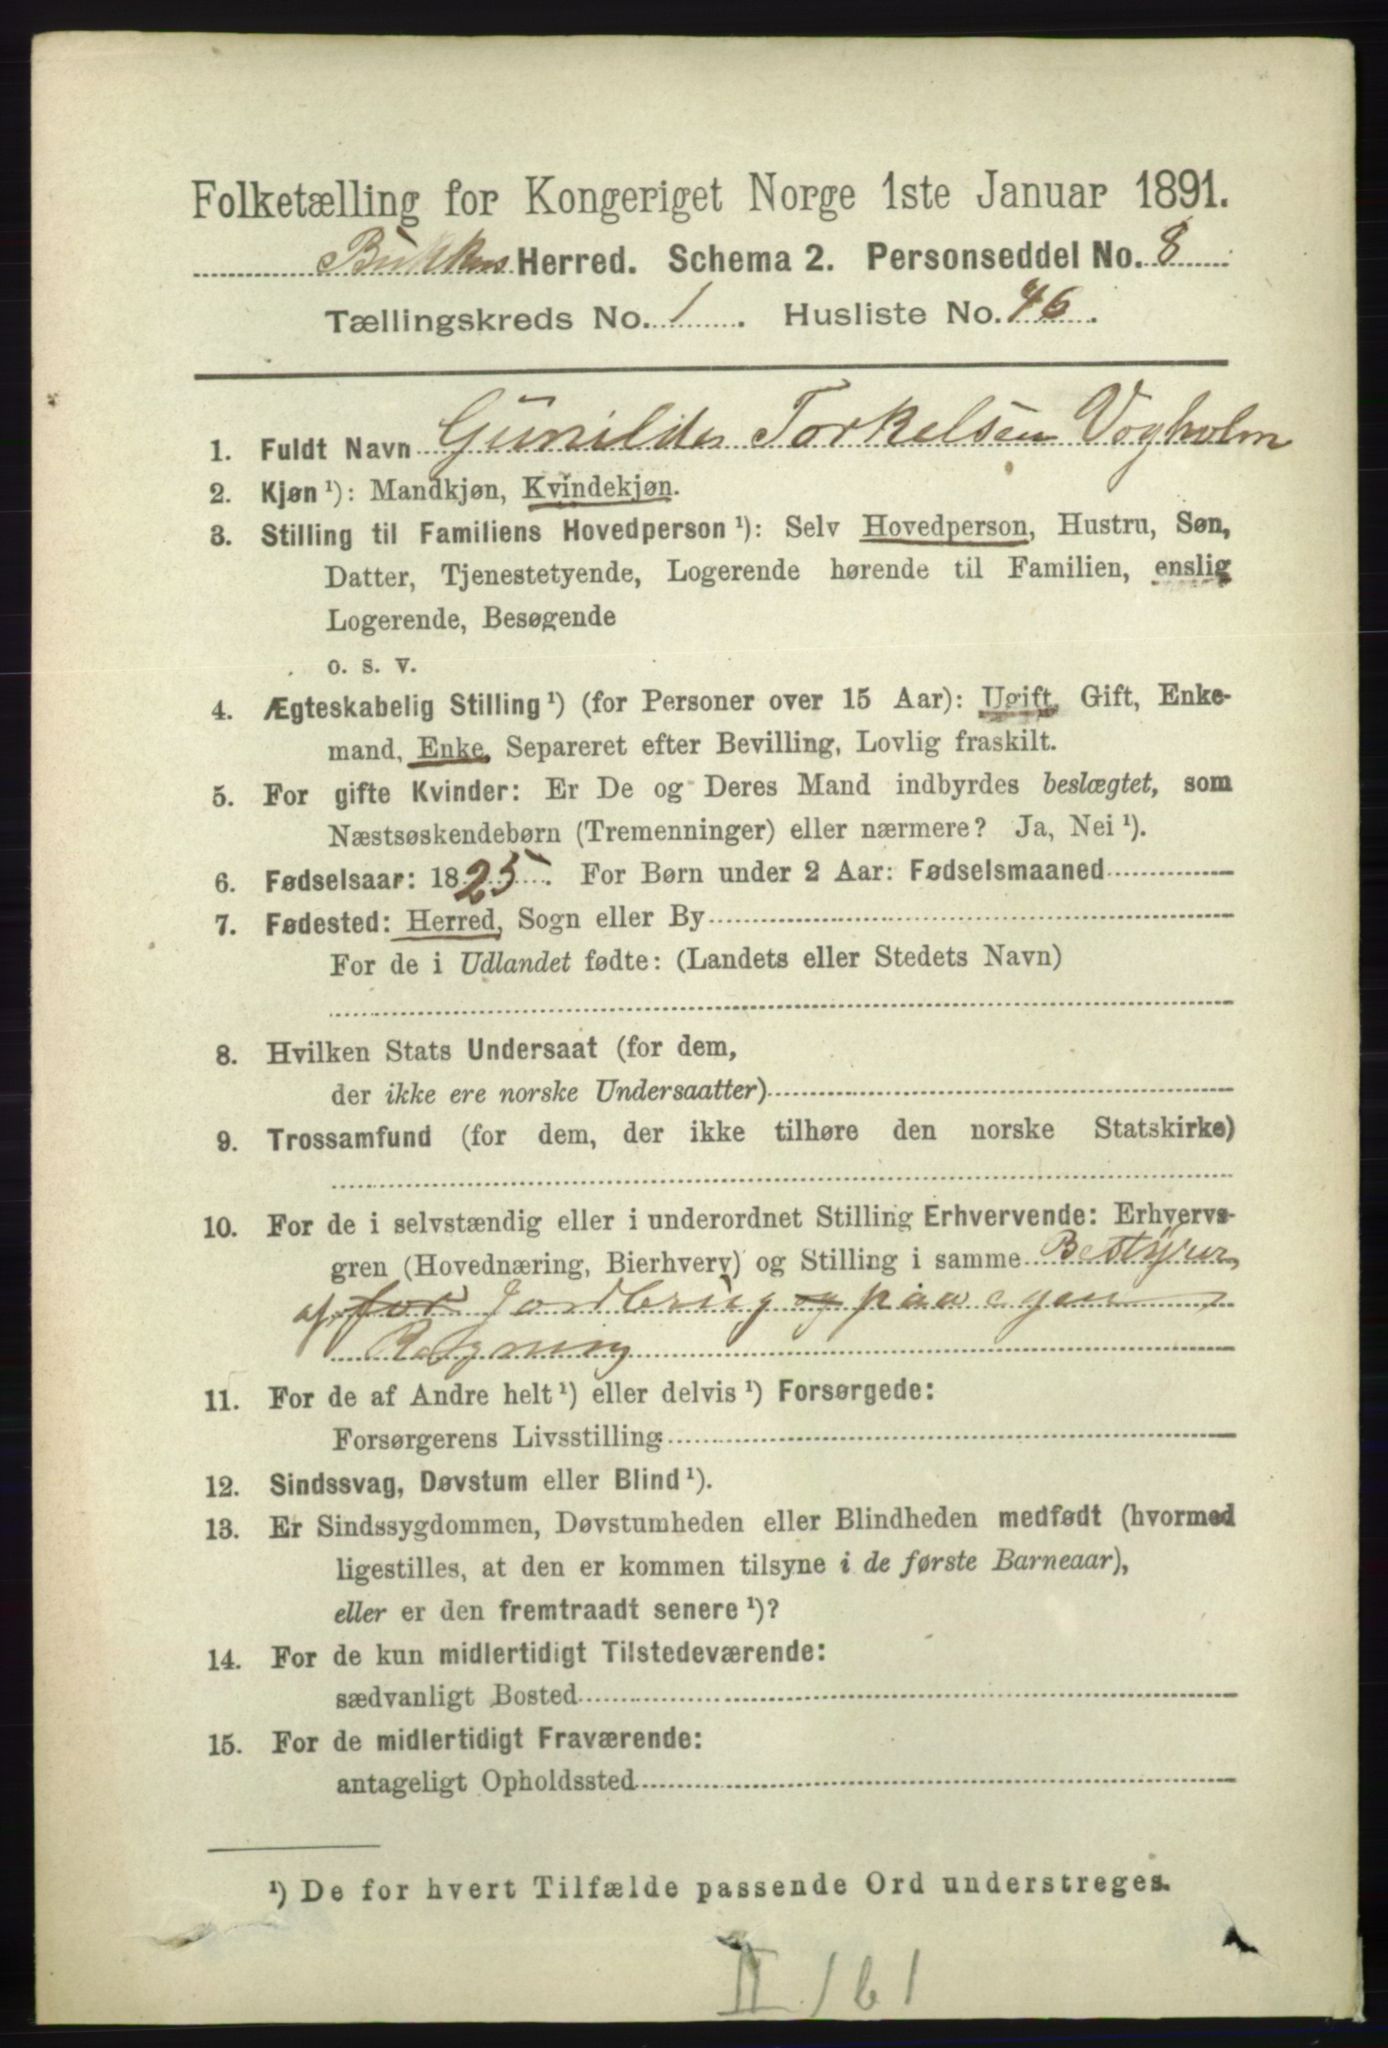 Folketælling for Kongeriget Norge 1ste Januar 1891.
Bukkens Herred. Schema 2. Personseddel No. 8
Tællingskreds No. 1. Husliste No. 46.
1. Fuldt Navn Gunilde Torkelsen Vogholm
2. Kjøn ¹): Mandkjøn, Kvindekjøn.
3. Stilling til Familiens Hovedperson ¹): Selv Hovedperson, Hustru, Søn,
Datter, Tjenestetyende, Logerende hørende til Familien, enslig
Logerende, Besøgende
o. s. v.
4. Ægteskabelig Stilling ¹) (for Personer over 15 Aar): Ugift, Gift, Enke-
mand, Enke, Separeret efter Bevilling, Lovlig fraskilt.
5. For gifte Kvinder: Er De og Deres Mand indbyrdes beslægtet, som
Næstsøskendebørn (Tremenninger) eller nærmere? Ja, Nei ¹).
6. Fødselsaar: 1825. For Børn under 2 Aar: Fødselsmaaned
7. Fødested: Herred, Sogn eller By
For de i Udlandet fødte: (Landets eller Stedets Navn)
8. Hvilken Stats Undersaat (for dem,
der ikke ere norske Undersaatter)
9. Trossamfund (for dem, der ikke tilhøre den norske Statskirke)
10. For de i selvstændig eller i underordnet Stilling Erhvervende: Erhvervs-
gren (Hovednæring, Bierhverv) og Stilling i samme Bestyrer
af for Jordbrug og paa egen
Regning
11. For de af Andre helt ¹) eller delvis ¹) Forsørgede:
Forsørgerens Livsstilling
12. Sindssvag, Døvstum eller Blind ¹).
13. Er Sindssygdommen, Døvstumheden eller Blindheden medfødt (hvormed
ligestilles, at den er kommen tilsyne i de første Barneaar),
eller er den fremtraadt senere ¹)?
14. For de kun midlertidigt Tilstedeværende:
sædvanligt Bosted
15. For de midlertidigt Fraværende:
antageligt Opholdssted
¹) De for hvert Tilfælde passende Ord understreges.
II 161